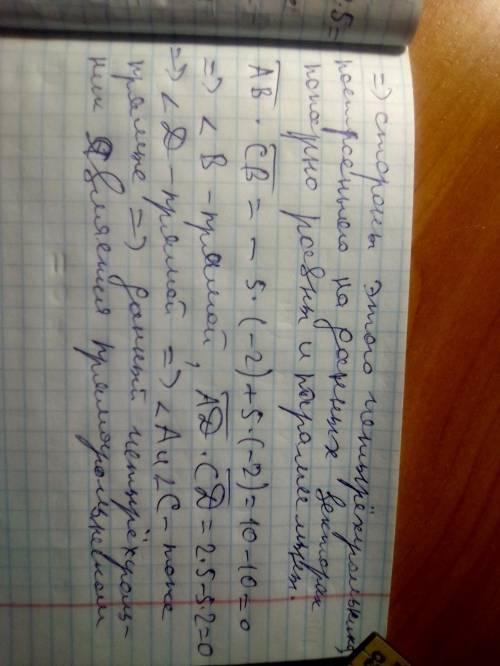 =) стороны этого четырёхугольника,
построенного на данных векторах
попарно равны и параллельны.
AB · CB = - 5 · (-2) + 5 · (-2) = 10 - 10 = 0
=) < B - прямой, AD · CD = 2.5 - 5.2 = 0
=) < D - прямой =) < A и < C - тоже
прямые =) данный четырёхуголь-
ник является прямоугольником
. 5 =